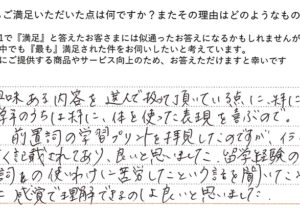 ご満足いただいた点は何ですか？またその理由はどのようなもの
1で『満足』と答えたお客さまには似通ったお答えになるかもしれませんが
中でも『最も』満足された件をお伺いしたいと考えています。
にご提供する商品やサービス向上のため、お答えただけますと幸いです
味ある内容を選んで扱って頂いている点に、特に
のうちは特に、体を使った表現を喜ぶので。
前置詞の学習プリントを拝見したのですが、
く記載されており、良いと思いました。留学経験の
詞の使いわけに苦労したという話を聞いたこと
感覚で理解できるのは良いと思いました。